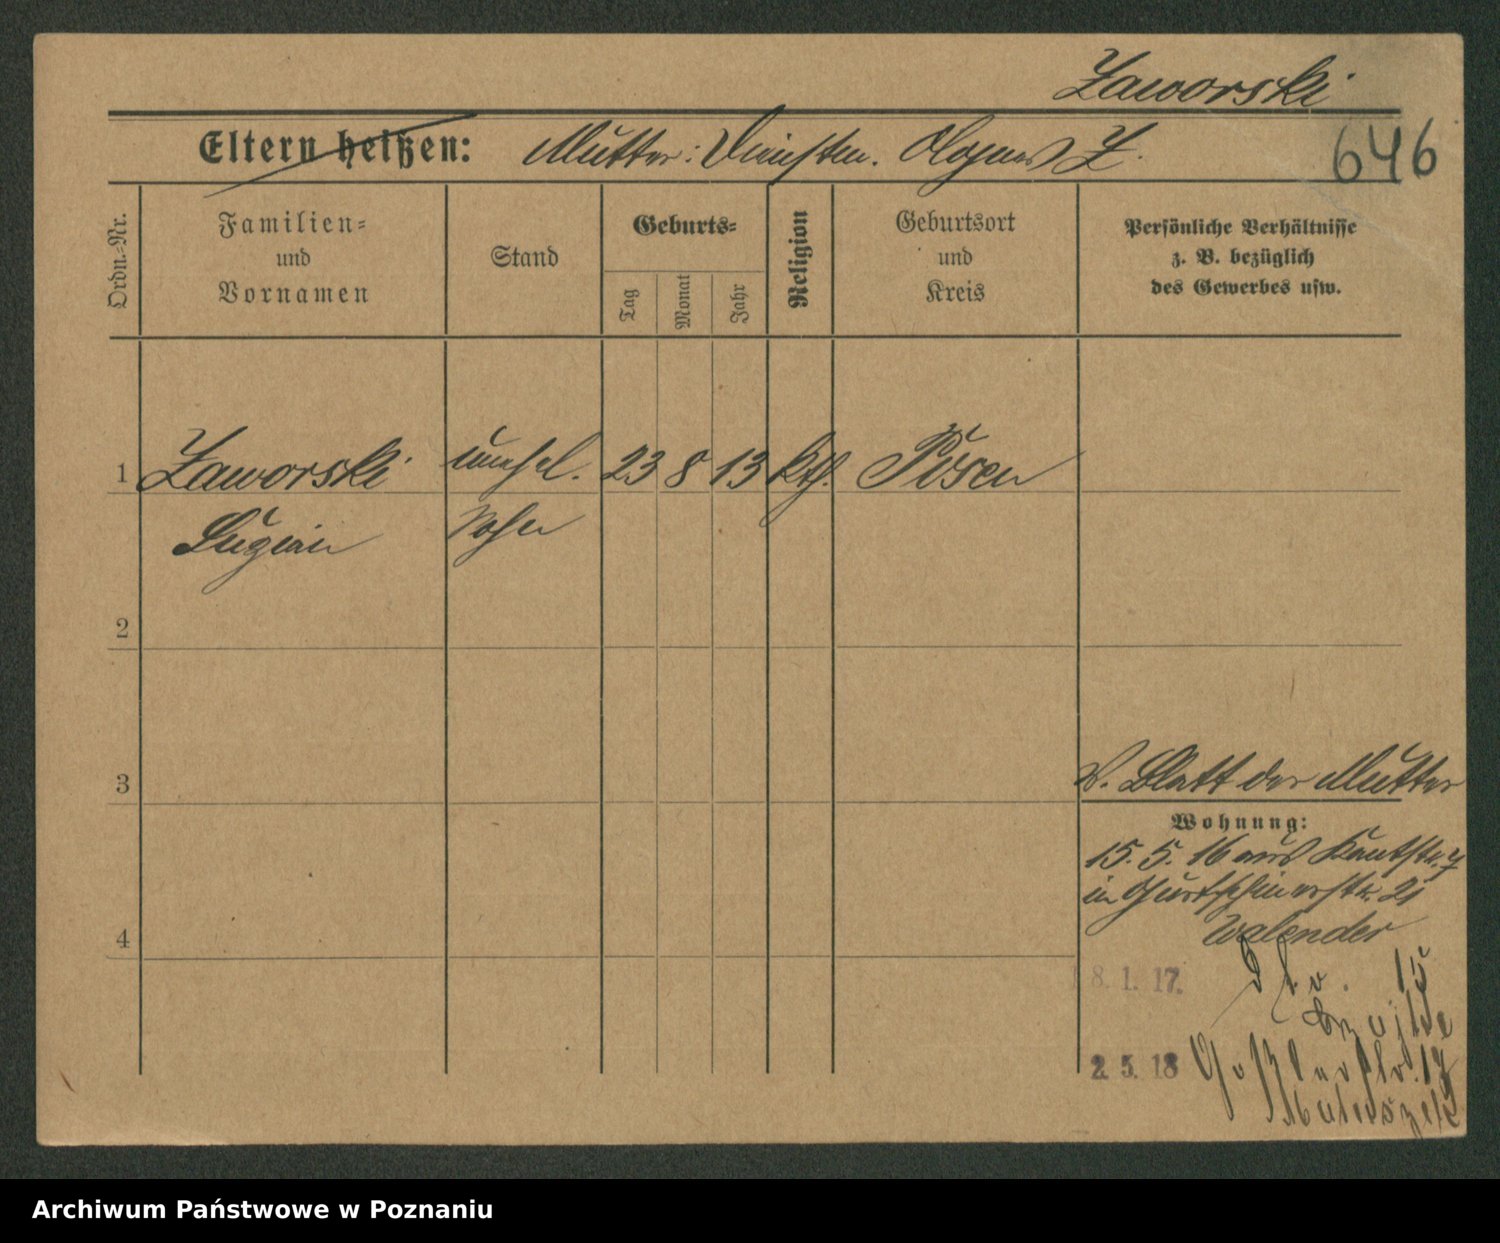 Zaworski
646
Eltern heißen: Mutter: Dienstm. Agnes Z.
Ordn.-Nr.
Familien-
und
Vornamen
Stand
Geburts-
Tag
Monat
Jahr
Religion
Geburtsort
und
Kreis
Persönliche Verhältnisse
z. B. bezüglich
des Gewerbes usw.
1 Zaworski unehel. 23 8 13 kth. Posen
Luzian Sohn
2
3
V. Blatt der Mutter
Wohnung:
15. 5. 16 aus Kantstr. 7
in 21
Walender
8. 1. 17. 15
2. 5. 18 17
Archiwum Państwowe w Poznaniu